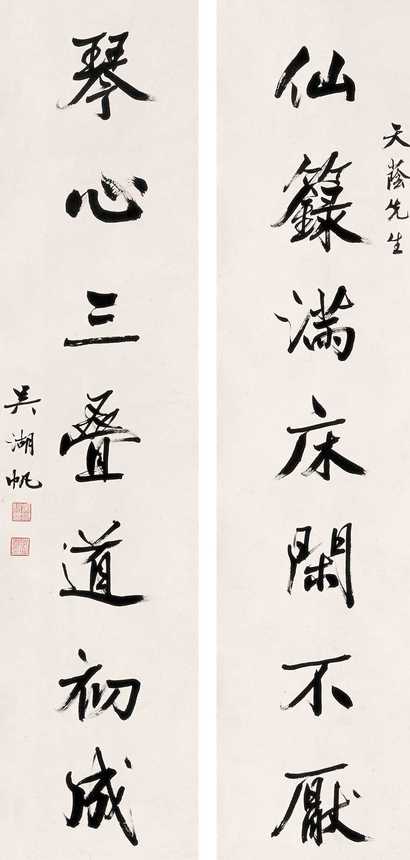 天蔭先生
仙籙滿床閑不厭
琴心三叠道初成
吳湖帆